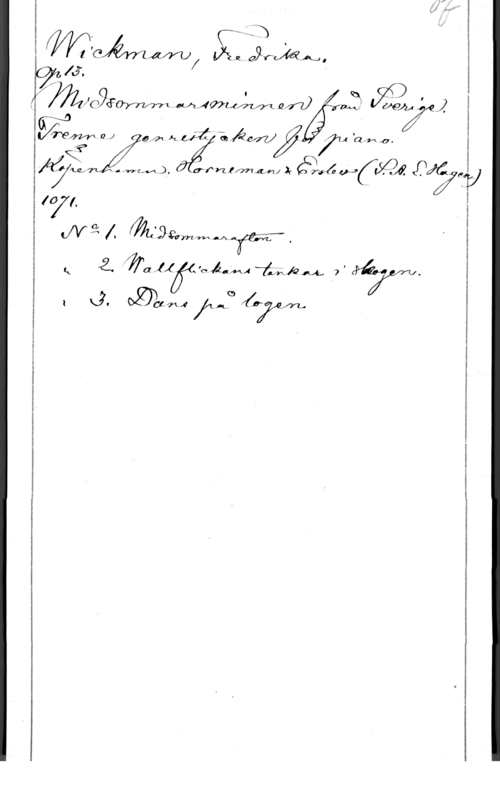 Wickman, Fredrika.
Op 13.
Midsommarsminnen från Sverige.
Trenne genrestycken för piano.
Köpenhamn. Horneman & Erslew (S. A. E. Hagen)
1071.
No 1. Midsommarafton.
" 2. Vallflickans tankar i skogen.
" 3. Dans på logen.